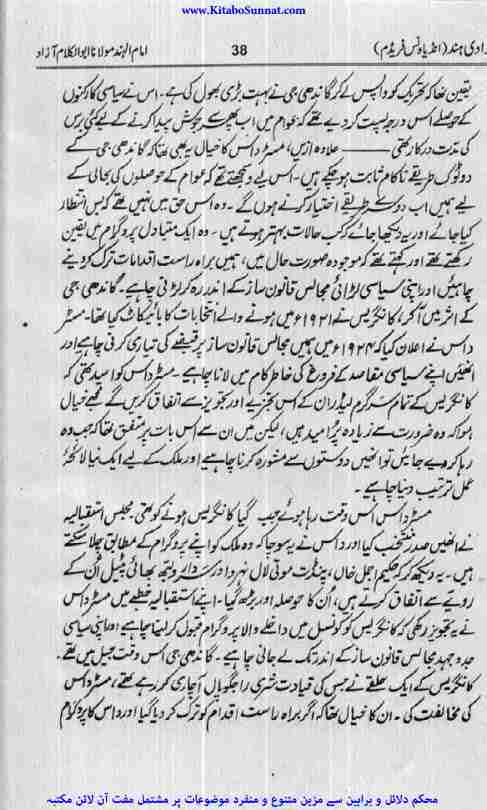 www.KitaboSunnat.com
زادی ہند (انڈیا ونس فریڈم) 38 امام الہند مولانا ابوالکلام آزاد
یقین تھا کہ تحریک کو واپس لے کر گاندھی جی نے بہت بڑی بھول کی ہے۔ اس نے سیاسی کارکنوں
کے حوصلے اس درجہ پست کر دیے تھے کہ عوام میں اب پھر سے جوش پیدا کرنے کے لیے کئی برس
کی مدت درکار تھی ——— علاوہ ازیں، مسٹر داس کا خیال یہ بھی تھا کہ گاندھی جی کے
دو ٹوک طریقے ناکام ثابت ہو چکے ہیں۔ اس لیے وہ سمجھتے تھے کہ عوام کے حوصلوں کی بحالی کے
لیے ہمیں اب دوسرے طریقے اختیار کرنے ہوں گے۔ وہ اس حق میں نہیں تھے کہ بس انتظار
کیا جائے اور یہ دیکھا جائے کہ کب حالات بہتر ہوتے ہیں۔ وہ ایک متبادل پروگرام میں یقین
رکھتے تھے اور کہتے تھے کہ موجودہ صورت حال میں، ہمیں براہ راست اقدامات ترک کر دینے
چاہئیں اور اپنی سیاسی لڑائی مجالس قانون ساز کے اندر رہ کر لڑنی چاہیے۔ گاندھی جی
کے اثر میں آ کر، کانگریس نے ۱۹۲۱ء میں ہونے والے انتخابات کا بائیکاٹ کیا تھا۔ مسٹر
داس نے اعلان کیا کہ ۱۹۲۴ء میں ہمیں مجالس قانون ساز پر قبضے کی تیاری کرنی چاہیے اور
انھیں اپنے سیاسی مقاصد کے فروغ کی خاطر کام میں لانا چاہیے۔ مسٹر داس کو امید تھی کہ
کانگریس کے تمام سرگرم لیڈر ان کے اس تجزیے اور تجویز سے اتفاق کریں گے۔ مجھے خیال
ہوا کہ وہ ضرورت سے زیادہ پُرامید ہیں، لیکن میں ان سے اس بات پر متفق تھا کہ جب وہ
رہا کر دیے جائیں تو انھیں دوستوں سے مشورہ کرنا چاہیے اور ملک کے لیے ایک نیا لائحۂ
عمل ترتیب دینا چاہیے۔
مسٹر داس اس وقت رہا ہوئے جب گیا کانگریس ہونے کو تھی۔ مجلس استقبالیہ
نے انھیں صدر منتخب کیا اور داس نے یہ سوچا کہ وہ ملک کو اپنے پروگرام کے مطابق چلا سکتے
ہیں۔ یہ دیکھ کر کہ حکیم اجمل خاں، پنڈت موتی لال نہرو اور سردار وٹھ بھائی پٹیل اُن کے
رویے سے اتفاق کرتے ہیں، اُن کا حوصلہ اور بڑھ گیا۔ اپنے استقبالیہ خطبے میں مسٹر داس
نے یہ تجویز رکھی کہ کانگریس کو کونسل میں داخلے والا پروگرام قبول کر لینا چاہیے اور اپنی سیاسی
جدوجہد مجالس قانون ساز کے اندر تک لے جانی چاہیے۔ گاندھی جی اس وقت جیل میں تھے۔
کانگریس کے ایک حلقے نے جس کی قیادت شری راجگوپال آچاری کر رہے تھے، مسٹر داس
کی مخالفت کی۔ ان کا خیال تھا کہ اگر براہ راست اقدام کو ترک کر دیا گیا اور داس کا پروگرام
محکم دلائل و براہین سے مزین متنوع و منفرد موضوعات پر مشتمل مفت آن لائن مکتبہ